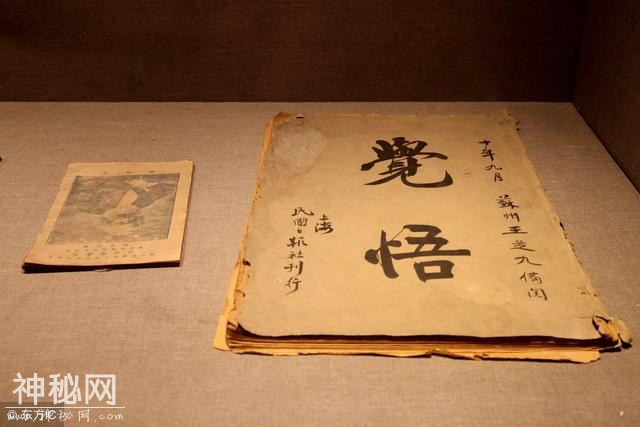 十年九月 蘇州王芝九備閱
覺悟
上海
民國日報社刊行
神秘网
©东方IC